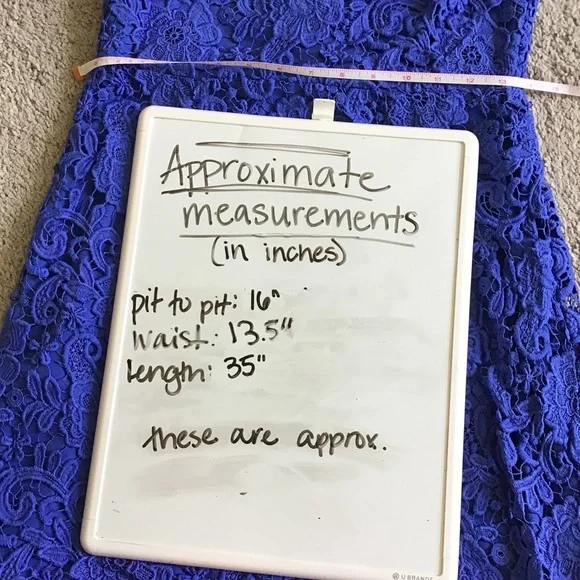 7 8 9 10 11 12 13 15
Approximate
measurements
(in inches)
pit to pit: 16"
waist: 13.5"
Length: 35"
these are approx.
U BRANDS